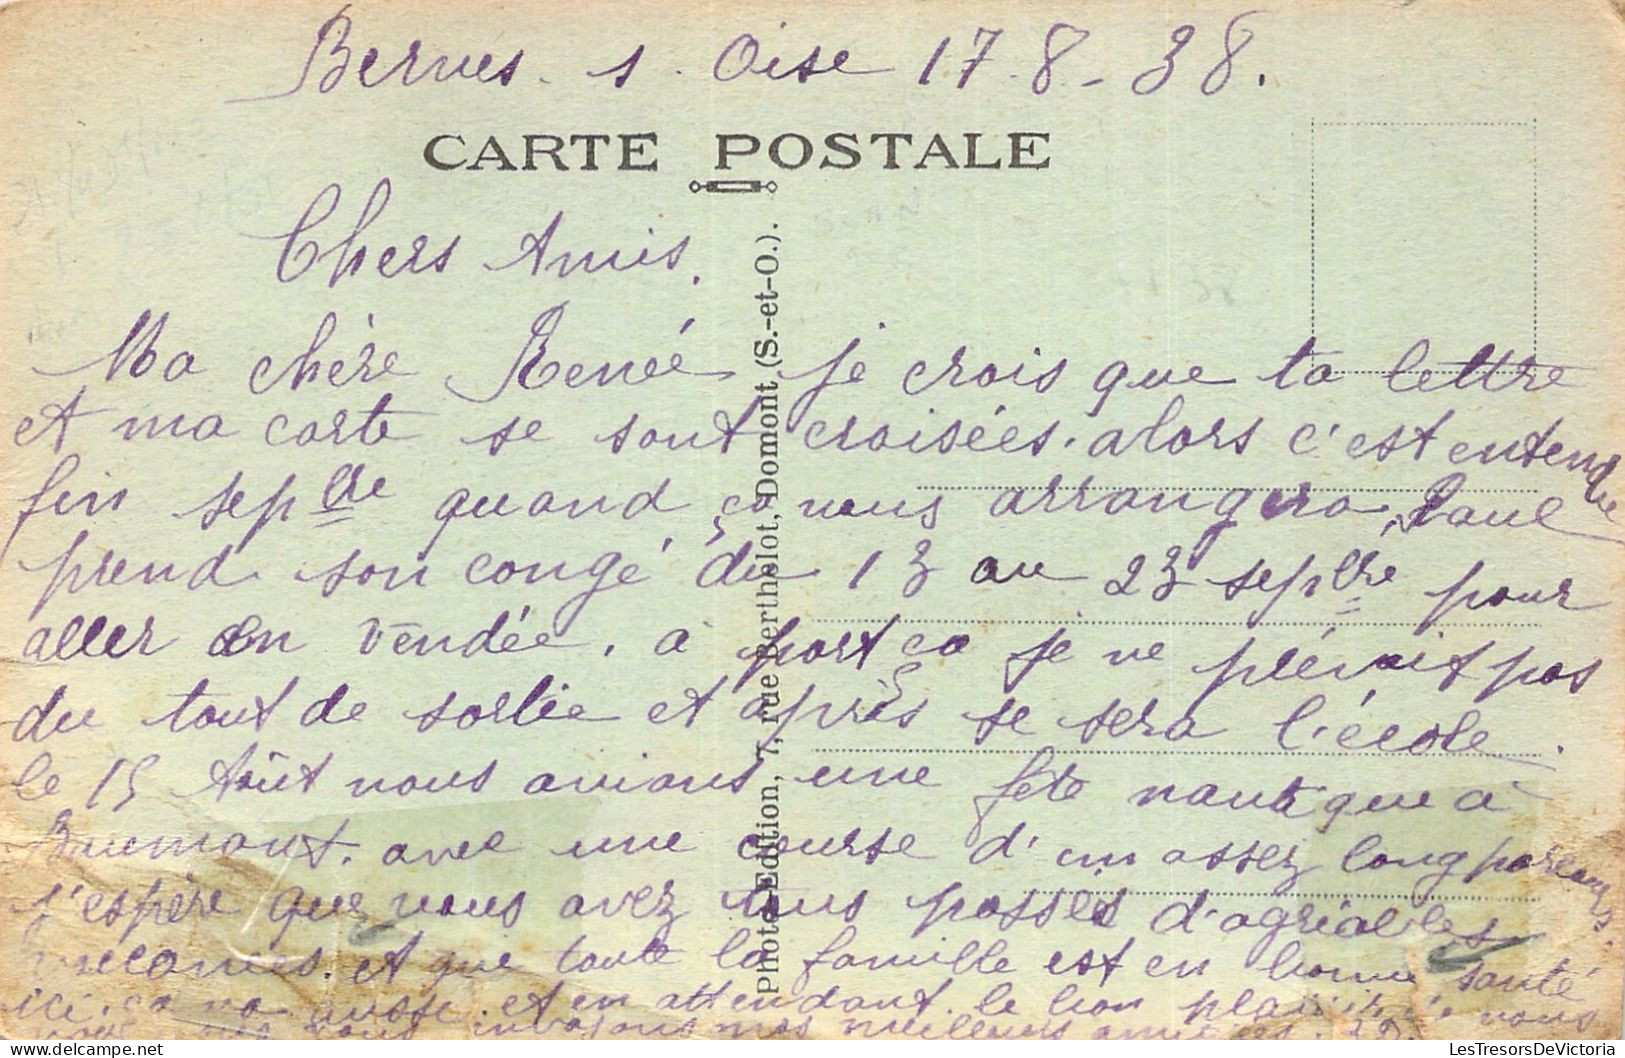 Bernes. s. Oise 17-8-38.
CARTE POSTALE
Chers Amis.
Ma chère Renée je crois que ta lettre
et ma carte se sont croisées. alors c'est entendue
fin sepbre quand ça nous arrangera, Paul
prend son congé du 13 au 23 sepbre pour
aller en Vendée. à part ça je ne prévoit pas
du tout de sortie et après se sera l'école.
le 15 Août nous avions une fête nautique à
Beaumont. avec une course d'un assez long parcours.
j'espère que vous avez tous passés d'agréables
vacances. et que toute la famille est en bonne santé
ici. ça va aussi et en attendant le bon plaisir de vous
voir nous vous envoyons nos meilleurs amitiés.
Photo-Edition, 7, rue Bertholot, Domont (S.-et-O.).
LesTresorsDeVictoria